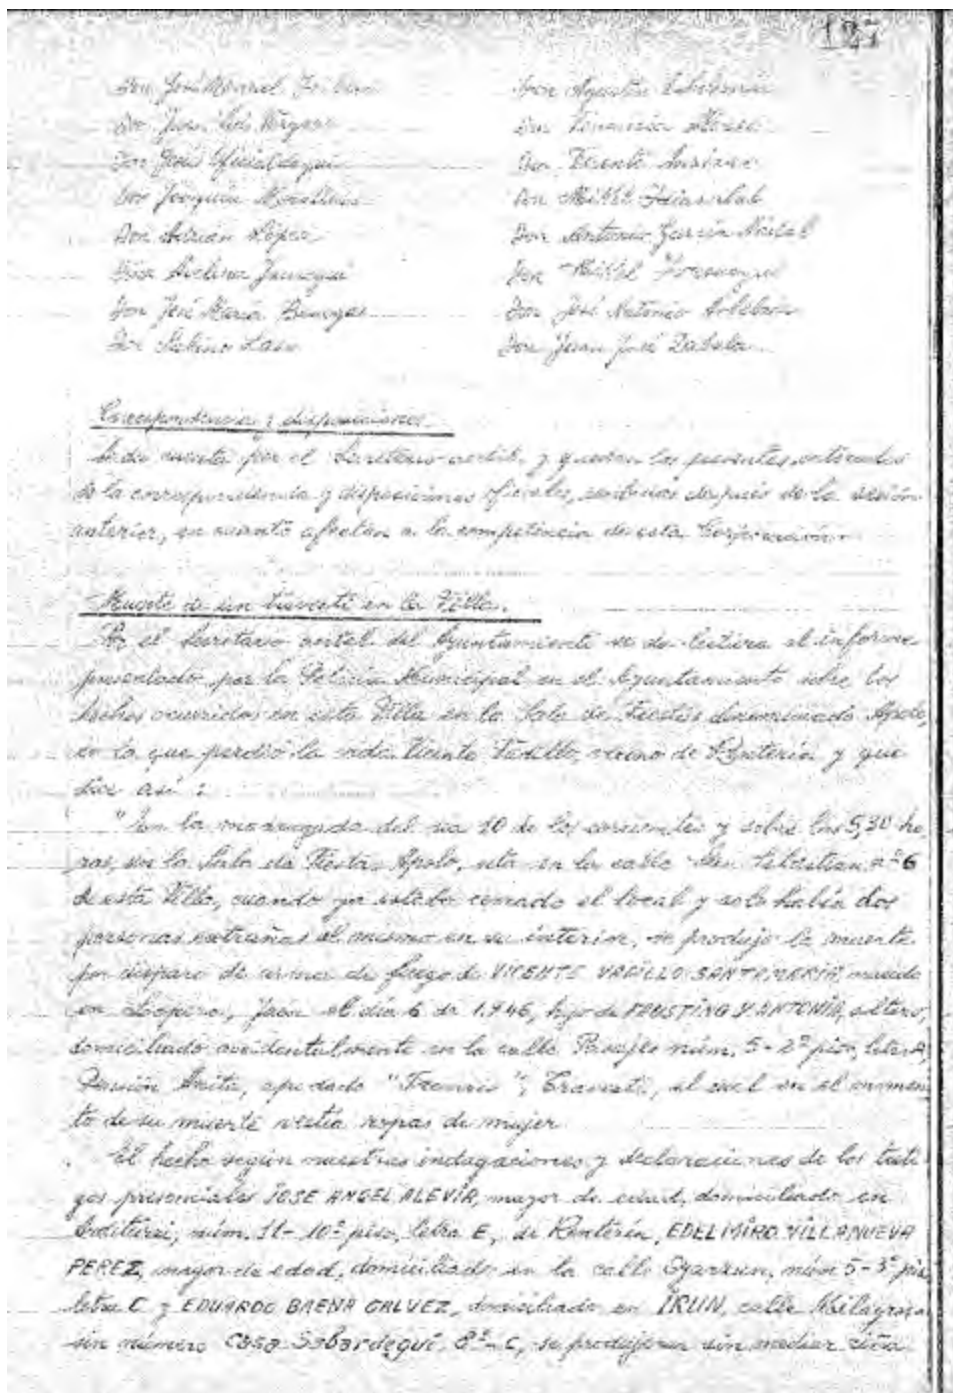 127
Don José Manuel
Don Agustín
Don Juan Luis Vergara
Don Venancio
Don José Oficialdegui
Don Vicente
Don Joaquín
Don Mikel
Don Adrián López
Don Antonio García Nadal
Doña Avelina Jauregui
Don Mikel
Don José María Banegas
Don José Antonio
Don Sabino Laso
Don Juan José Zabala
Correspondencia y disposiciones.
Se da cuenta por el Secretario acctal. y quedan los presentes enterados
de la correspondencia y disposiciones oficiales, recibidas después de la sesión
anterior, en cuanto afectan a la competencia de esta Corporación.
Muerte de un travesti en la Villa.
Por el Secretario acctal. del Ayuntamiento se da lectura al informe
presentado por la Policía Municipal en el Ayuntamiento sobre los
hechos ocurridos en esta Villa en la Sala de Fiestas denominada Apolo,
en la que perdió la vida Vicente Vadillo, vecino de Rentería y que
dice así:
"En la madrugada del día 10 de los corrientes y sobre las 5,30 ho-
ras, en la Sala de Fiestas Apolo, sita en la calle San Sebastian nº 6
de esta Villa, cuando ya estaba cerrado el local y solo había dos
personas extrañas al mismo en su interior, se produjo la muerte
por disparo de arma de fuego de VICENTE VADILLO SANTAMARIA, nacido
en Lopera, Jaén el día 6 de 1.946, hijo de FAUSTINO Y ANTONIA, soltero,
domiciliado accidentalmente en la calle Pasajes núm. 5-2º piso, letra A,
Pensión Anita, apodado " ", Travesti, el cual en el momen-
to de su muerte vestía ropas de mujer
El hecho según nuestras indagaciones y declaraciones de los testi-
gos presenciales JOSE ANGEL ALEVIA, mayor de edad, domiciliado en
núm. 11-10º piso, letra E, de Rentería, EDELMIRO VILLANUEVA
PEREZ, mayor de edad, domiciliado en la calle Oyarzun, núm 5-3º piso
letra C y EDUARDO BAENA GALVEZ, domiciliado en IRUN, calle Milagrosa
sin número Casa Sobardegui, 8º-C, se produjeron sin mediar riña